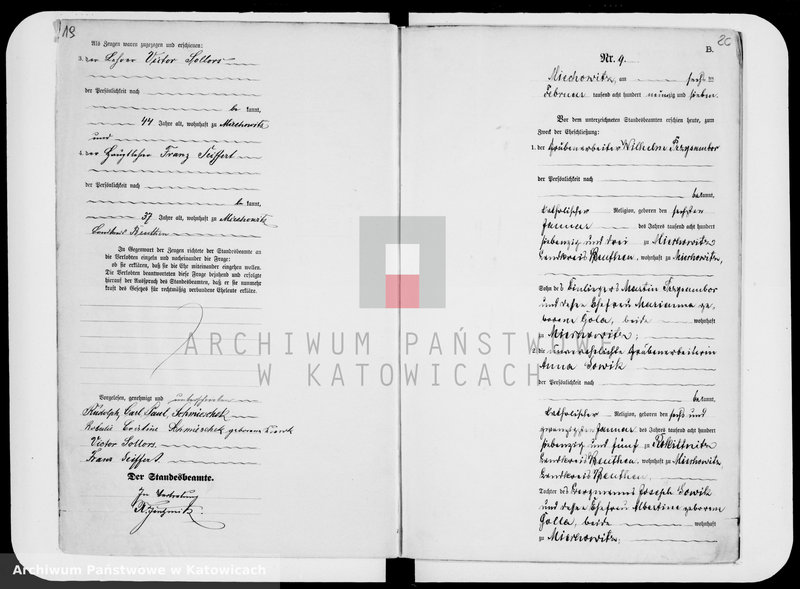 19
Als Zeugen waren zugezogen und erschienen:
3. der Lehrer Victor Sollors
der Persönlichkeit nach
be kannt,
44 Jahre alt, wohnhaft zu Miechowitz
und
4. der Hauptlehrer Franz Seiffert
der Persönlichkeit nach
be kannt,
37 Jahre alt, wohnhaft zu Miechowitz
Landkreis Beuthen
In Gegenwart der Zeugen richtete der Standesbeamte an
die Verlobten einzeln und nacheinander die Frage:
ob sie erklären, daß sie die Ehe miteinander eingehen wollen.
Die Verlobten beantworteten diese Frage bejahend und erfolgte
hierauf der Ausspruch des Standesbeamten, daß er sie nunmehr
kraft des Gesetzes für rechtmäßig verbundene Eheleute erkläre.
Vorgelesen, genehmigt und unterschrieben
Rudolph, Carl Paul, Schwierschek
Cristine geborene
Victor Sollors.
Franz Seiffert.
Der Standesbeamte.
In Vertretung
26
B.
Nr. 9.
Miechowitz, am sechs ten
Februar tausend acht hundert neunzig und sieben.
Vor dem unterzeichneten Standesbeamten erschien heute, zum
Zweck der Eheschließung:
1. der Grubenarbeiter Wilhelm Przysambor
der Persönlichkeit nach
bekannt,
katholischer Religion, geboren den sechsten
Januar des Jahres tausend acht hundert
siebenzig und drei zu Miechowitz
Landkreis Beuthen, wohnhaft zu Miechowitz,
Sohn des Einliegers Martin Przysambor
und dessen Ehefrau Marianna ge,
borene Gola, beide wohnhaft
zu Miechowitz;
2. die unverehelichte Grubenarbeiterin
Anna Sowik
der Persönlichkeit nach
bekannt,
katholischer Religion, geboren den sechs und
zwanzigsten Januar des Jahres tausend acht hundert
siebenzig und fünf zu Rokittnitz
Landkreis Beuthen, wohnhaft zu Miechowitz
Landkreis Beuthen,
Tochter des Bergmanns Joseph Sowik
und dessen Ehefrau Albertine geborene
Golla, beide wohnhaft
zu Miechowitz;
ARCHIWUM PAŃSTWOWE
W KATOWICACH
Archiwum Państwowe w Katowicach